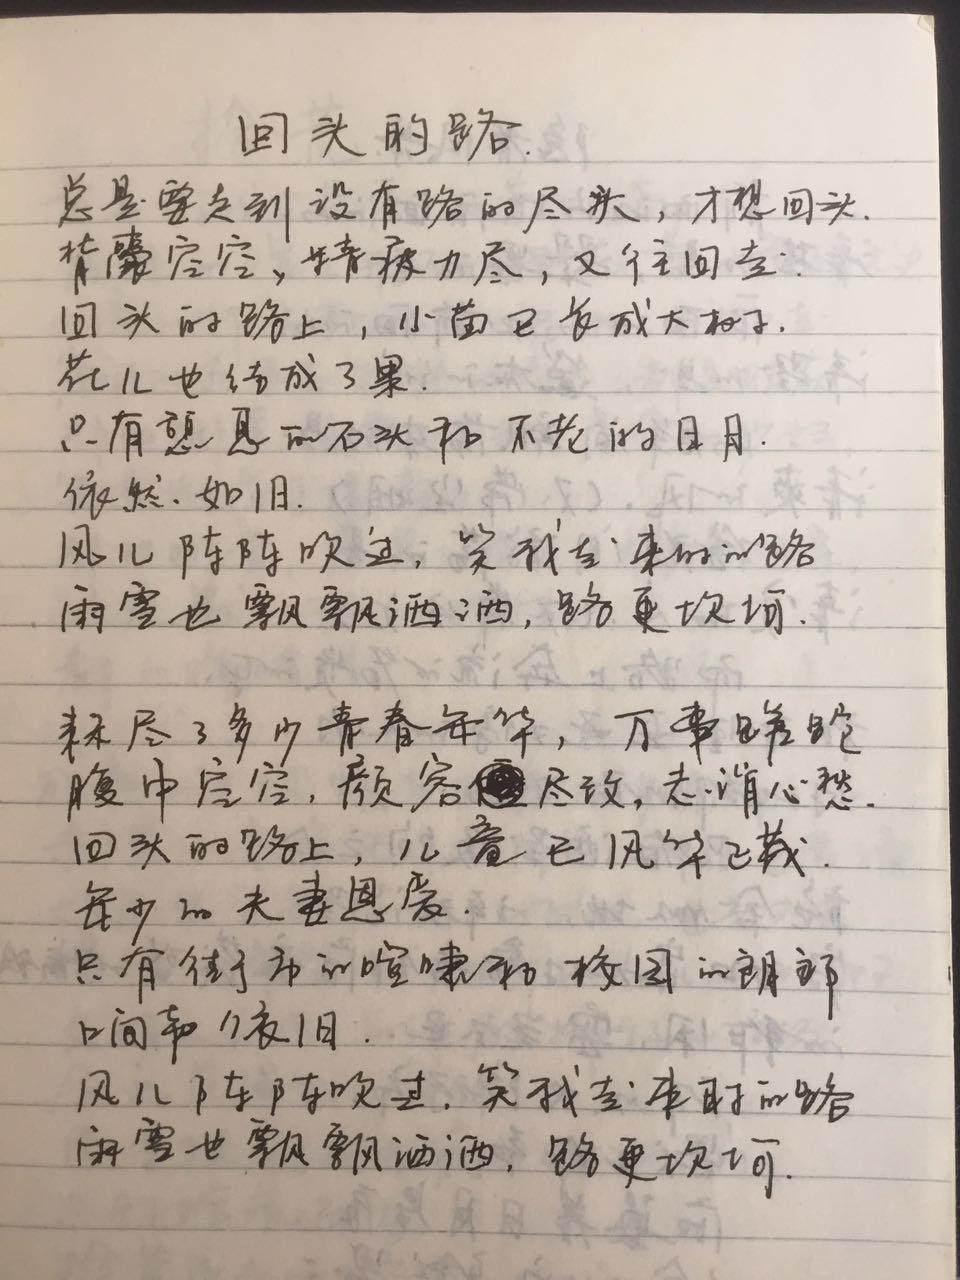 回头的路.
总是要走到没有路的尽头，才想回头.
背囊空空、精疲力尽，又往回走.
回头的路上，小苗已长成大树了.
花儿也结成了果.
只有憩息的石头和不老的日月.
依然.如旧.
风儿阵阵吹过，笑我走来时的路
雨雪也飘飘洒洒，路更坎坷.
耗尽了多少青春年华，万事蹉跎
腹中空空，颜容尽改，志消心愁.
回头的路上，儿童已风华正茂.
年少的夫妻恩爱.
只有街市的喧啸和校园的朗郎
口间和依旧.
风儿阵阵吹过.笑我走来时的路
雨雪也飘飘洒洒，路更坎坷.